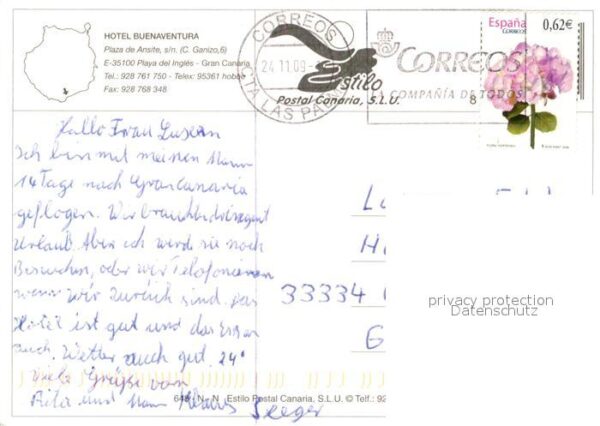 HOTEL BUENAVENTURA
Plaza de Ansite, s/n. (C. Ganizo,6)
E-35100 Playa del Inglés - Gran Canaria
Tel.: 928 761 750 - Telex: 95361 hobue
Fax: 928 768 348
CORREOS
24.11.09
LAS PAL
Estilo
Postal Canaria, S.L.U.
CORREOS
LA COMPAÑÍA DE TODOS
8
España
0,62€
Hallo Frau
Ich bin mit meinen Mann
14 Tage nach Grancanaria
geflogen. Wir brauchten dringend
Urlaub Aber ich werd sie noch
Besuchen, oder wir Telefonieren
wenn wir zurück sind. Das
Hotel ist gut und das Essen
auch. Wetter auch gut. 24°
Viele Grüße von
Rita und Mann Klaus Seeger
L
H
33334
G
privacy protection
Datenschutz
648 - N - N Estilo Postal Canaria, S.L.U. © Telf.: 92